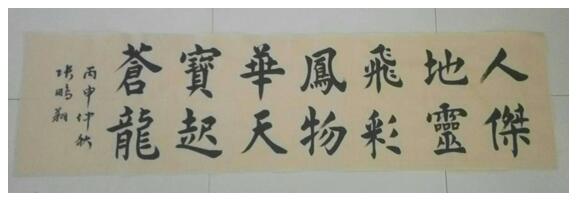 人傑
地靈
飛彩
鳳物
華天
寶起
蒼龍
丙申仲秋
张鵬翔